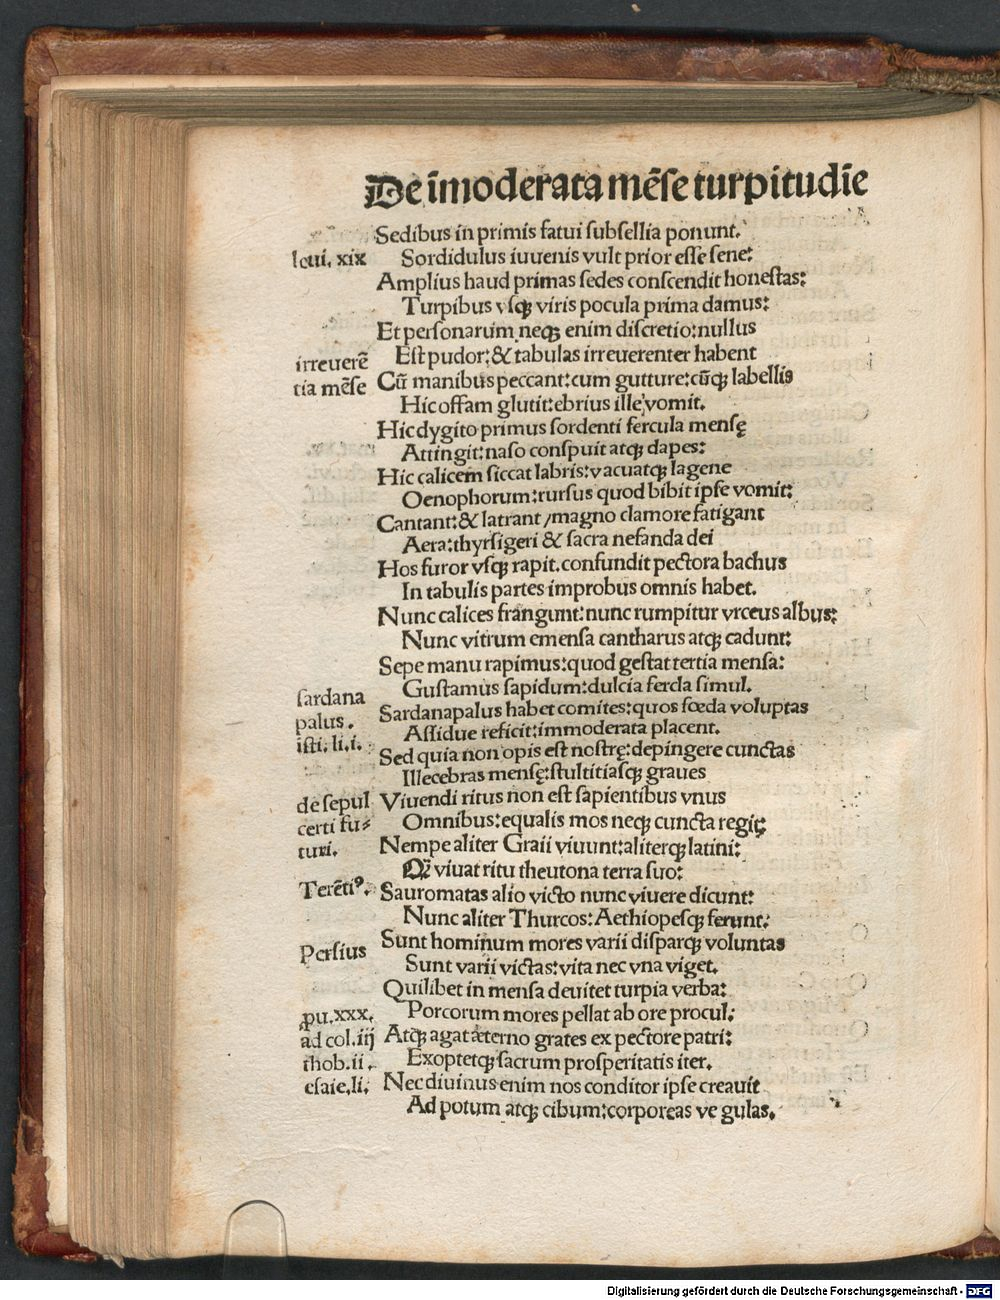 De īmoderata mēse turpitudīe
Sedibus in primis fatui subsellia ponunt.
leui. xix
Sordidulus iuuenis vult prior esse sene:
Amplius haud primas sedes conscendit honestas:
Turpibus vsq; viris pocula prima damus:
Et personarum neq; enim discretio: nullus
irreuerē
tia mēse
Est pudor: & tabulas irreuerenter habent
Cū manibus peccant: cum gutture: cūq; labellis
Hic offam glutit: ebrius ille vomit.
Hic dygito primus sordenti fercula mensę
Attingit: naso conspuit atq; dapes:
Hic calicem siccat labris: vacuatq; lagene
Oenophorum: rursus quod bibit ipse vomit:
Cantant: & latrant / magno clamore fatigant
Aera: thyrsigeri & sacra nefanda dei
Hos furor vsq; rapit. confundit pectora bachus
In tabulis partes improbus omnis habet.
Nunc calices frangunt: nunc rumpitur vrceus albus:
Nunc vitrum e mensa cantharus atq; cadunt:
Sepe manu rapimus: quod gestat tertia mensa:
Gustamus sapidum: dulcia fercla simul.
sardana
palus.
isti. li. i.
Sardanapalus habet comites: quos fœda voluptas
Assidue reficit: immoderata placent.
Sed quia non opis est nostrę: depingere cunctas
Illecebras mensę: stultitiasq; graues
de sepul
certi fu⸗
turi.
Viuendi ritus non est sapientibus vnus
Omnibus: equalis mos neq; cuncta regit:
Nempe aliter Graii viuunt: aliterq; latini:
Terētiꝰ.
Qͥ viuat ritu theutona terra suo:
Sauromatas alio victo nunc viuere dicunt:
Nunc aliter Thurcos: Aethiopesq; ferunt:
Persius
Sunt hominum mores varii disparq; voluntas
Sunt varii victas: vita nec vna viget.
Quilibet in mensa deuitet turpia verba:
ꝓu. xxx.
ad col. iij
thob. ii.
esaie. li.
Porcorum mores pellat ab ore procul:
Atq; agat æterno grates ex pectore patri:
Exoptetq; sacrum prosperitatis iter.
Nec diuinus enim nos conditor ipse creauit
Ad potum atq; cibum: corporeas ve gulas.
Digitalisierung gefördert durch die Deutsche Forschungsgemeinschaft - DFG